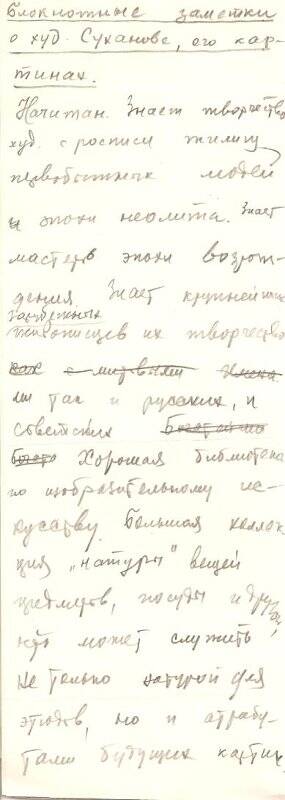 Блокнотные заметки
о худ. Суханове, его кар-
тинах.
Начитан. Знает творчество
худ. с росписи жилищ
первобытных людей
и эпохи неолита. Знает
мастеров эпохи возрож-
дения. Знает крупнейших
зарубежных
живописцев их творчество
как с мировыми имена
ми так и русских, и
советских
Хорошая библиотека
по изобразительному ис-
кусству. Большая коллек
ция „натуры" вещей
предметов, посуды и другой,
что может служить
не только натурой для
этюдов, но и атрибу-
тами будущих картин